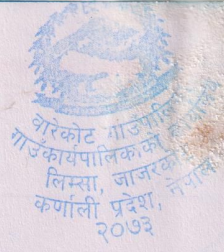 बारेकोट गाउँपालि
गाउँकार्यपालिका
लिम्सा, जाजरको
कर्णाली प्रदेश, नेपाल
२०७३